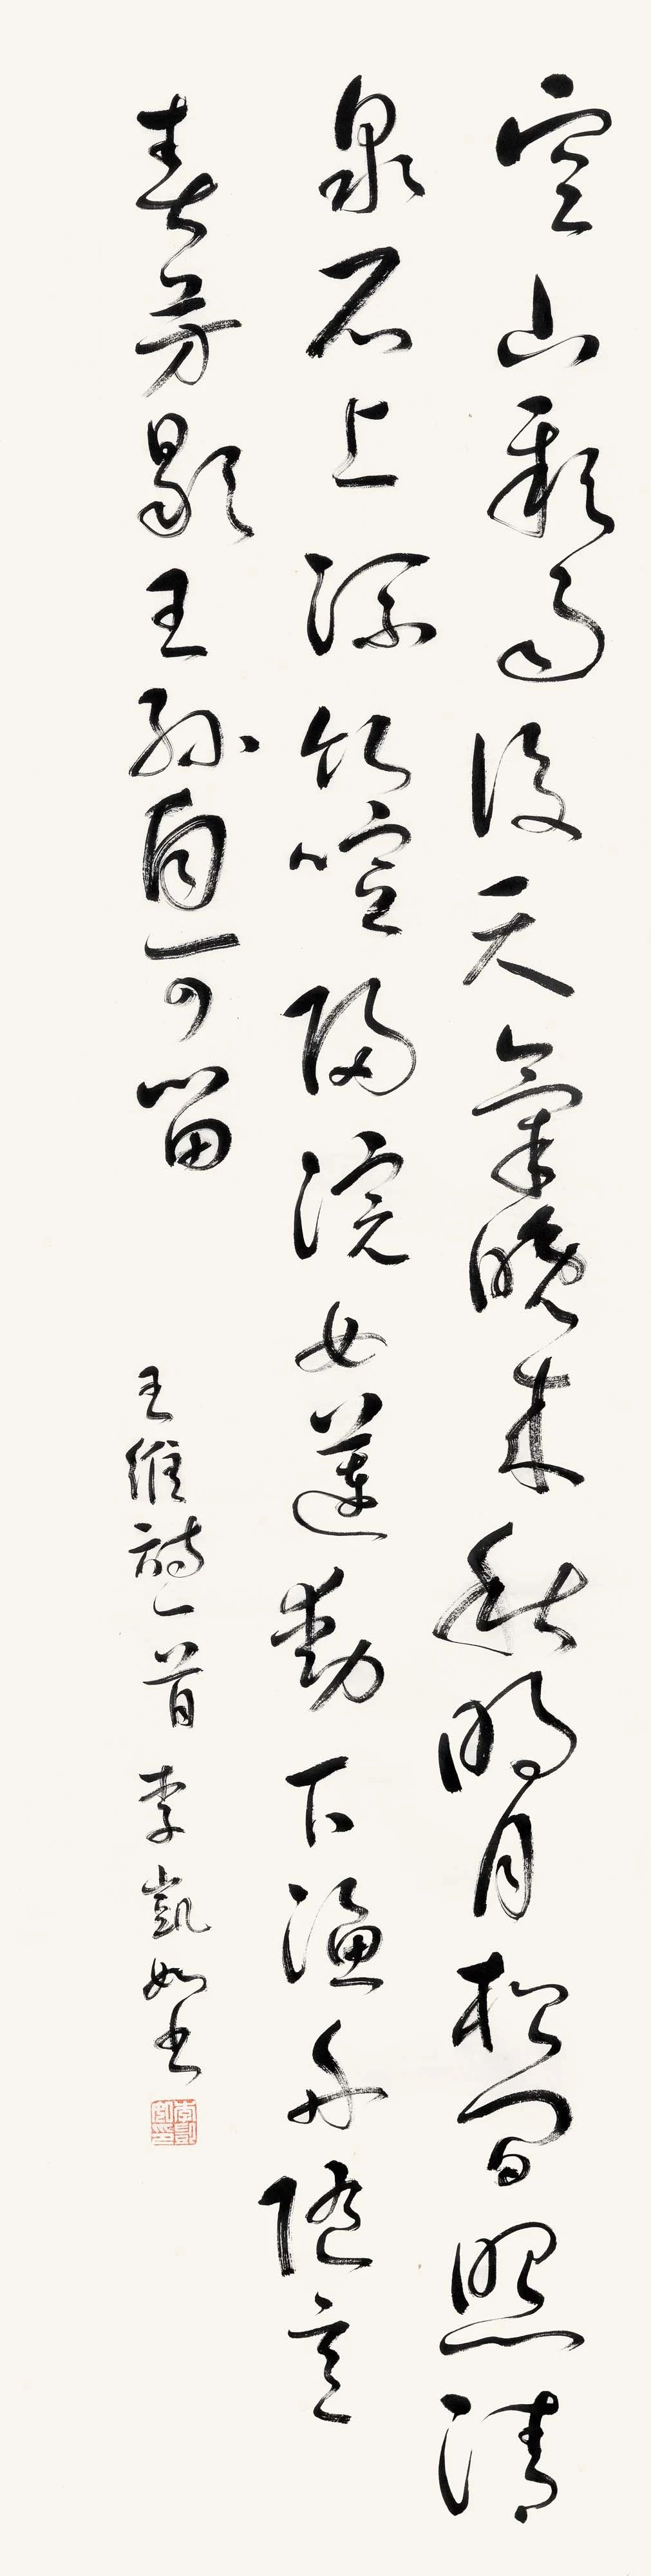 空山新雨後天氣晚來秋明月松間照清
泉石上流竹喧歸浣女蓮動下漁舟隨意
春芳歇王孫自可留
王維詩一首 李凱如書